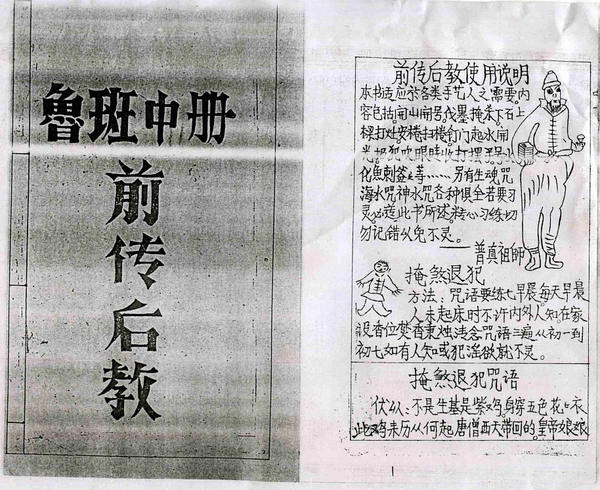 魯班中册
前传后教
前传后教使用说明
本书适应於各类手艺人之需要。内
容包括開山開号伐墨掩杀下石上
樑打灶安槵扫槵
化魚刺签上毒……另有生魂咒
海水咒神水咒各种俱全若要习
灵必遵此书所述专心习练切
勿记错从免不灵。
——普真祖師
掩煞退犯
方法：咒语要练七早晨每天早晨
人未起床时不许内外人知在家
設香位焚香秉烛淺念咒语三遍从初一到
初七如有人知或犯淫欲就不灵。
掩煞退犯咒语
伏以：不是生基是紫鸡身穿五色花花衣
此鸡来历从何起唐僧西天带回的。皇帝娘娘